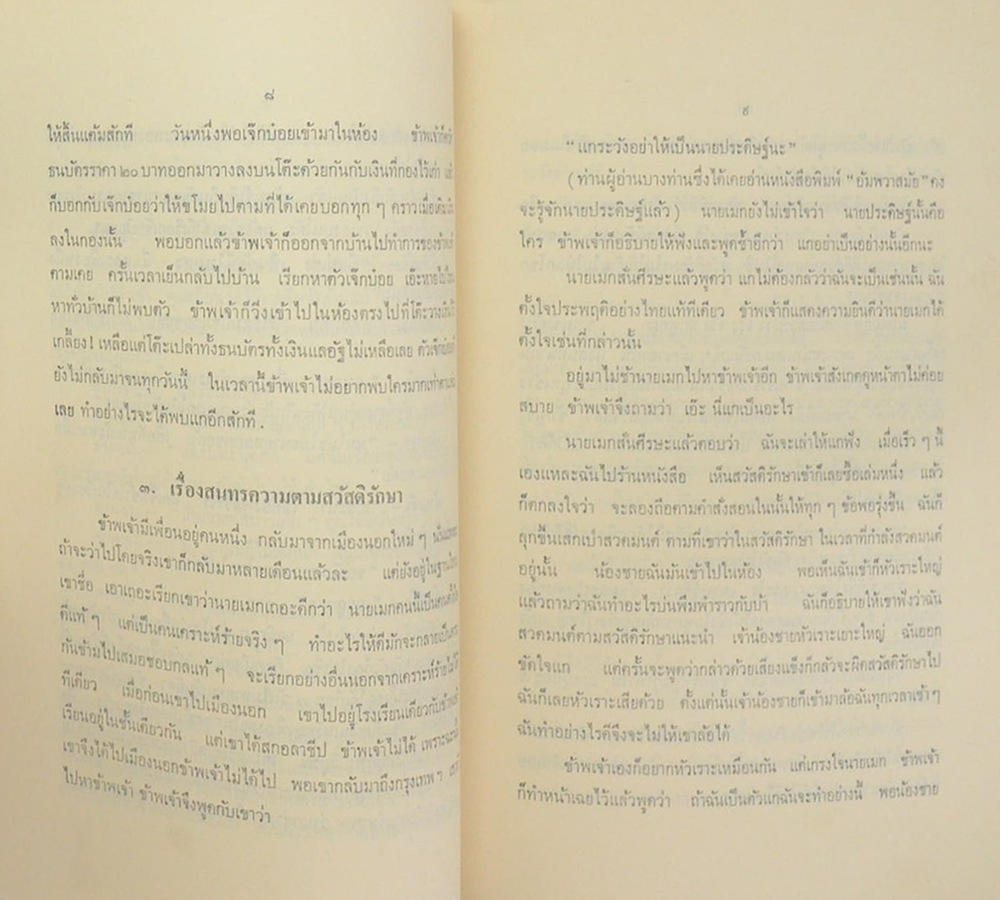 ๘
ให้สิ้นแต้มสักที วันหนึ่งพอเจ๊กบ๋อยเข้ามาในห้อง ข้าพเจ้าก็
ธนบัตรราคา ๒๐ บาทออกมาวางลงบนโต๊ะด้วยกันกับเงินที่กองไว้เก่า
ก็บอกกับเจ๊กบ๋อยว่าให้ขโมยไปตามที่ได้เคยบอกทุก ๆ คราวเมื่อ
ลงในกองนั้น พอบอกแล้วข้าพเจ้าก็ออกจากบ้านไปทำการของ
ตามเคย ครั้นเวลาเย็นกลับไปบ้าน เรียกหาตัวเจ๊กบ๋อย เอ๊ะหาย
หาทั่วบ้านก็ไม่พบตัว ข้าพเจ้าก็วิ่งเข้าไปในห้องตรงไปที่โต๊ะวาง
เกลี้ยง! เหลือแต่โต๊ะเปล่าทั้งธนบัตรทั้งเงินแลอัฐไม่เหลือเลย
ยังไม่กลับมาจนทุกวันนี้ ในเวลานี้ข้าพเจ้าไม่อยากพบใครมากเท่า
เลย ทำอย่างไรจะได้พบแกอีกสักที .
๓. เรื่องสนทรความตามสวัสดิรักษา
ข้าพเจ้ามีเพื่อนอยู่คนหนึ่ง กลับมาจากเมืองนอกใหม่ ๆ
ถ้าจะว่าไปโดยจริงเขาก็กลับมาหลายเดือนแล้วละ แต่ยังอยู่ใน
เขาชื่อ เอาเถอะเรียกเขาว่านายเมกเถอะดีกว่า นายเมกคนนี้เป็นคน
ดีแท้ ๆ แต่เป็นคนเคราะห์ร้ายจริง ๆ ทำอะไรให้ดีมักจะกลายเป็น
กันข้ามไปเสมอชอบกลแท้ ๆ จะเรียกอย่างอื่นนอกจากเคราะห์ร้าย
ทีเดียว เมื่อก่อนเขาไปเมืองนอก เขาไปอยู่โรงเรียนเดียวกับ
เรียนอยู่ในชั้นเดียวกัน แต่เขาได้สกอลาชีป ข้าพเจ้าไม่ได้
เขาจึงได้ไปเมืองนอกข้าพเจ้าไม่ได้ไป พอเขากลับมาถึงกรุงเทพ ฯ
ไปหาข้าพเจ้า ข้าพเจ้าจึงพูดกับเขาว่า
๙
“แกระวังอย่าให้เป็นนายประดิษฐ์นะ”
(ท่านผู้อ่านบางท่านซึ่งได้เคยอ่านหนังสือพิมพ์ “อัมพวาสมัย” คง
จะรู้จักนายประดิษฐ์แล้ว) นายเมกยังไม่เข้าใจว่า นายประดิษฐ์นั้นคือ
ใคร ข้าพเจ้าก็อธิบายให้ฟังและพูดซ้ำอีกว่า แกอย่าเป็นอย่างนั้นอีกนะ
นายเมกสั่นศีรษะแล้วพูดว่า แกไม่ต้องกลัวว่าฉันจะเป็นเช่นนั้น ฉัน
ตั้งใจประพฤติอย่างไทยแท้ทีเดียว ข้าพเจ้าก็แสดงความยินดีว่านายเมกได้
ตั้งใจเช่นที่กล่าวนั้น
อยู่มาไม่ช้านายเมกไปหาข้าพเจ้าอีก ข้าพเจ้าสังเกตดูหน้าตาไม่ค่อย
สบาย ข้าพเจ้าจึงถามว่า เอ๊ะ นี่แกเป็นอะไร
นายเมกสั่นศีรษะแล้วตอบว่า ฉันจะเล่าให้แกฟัง เมื่อเร็ว ๆ นี้
เองแหละฉันไปร้านหนังสือ เห็นสวัสดิรักษาเข้าก็เลยซื้อเล่มหนึ่ง แล้ว
ก็ตกลงใจว่า จะลองถือตามคำสั่งสอนในนั้นให้ทุก ๆ ข้อพอรุ่งขึ้น ฉันก็
ลุกขึ้นเสกเป่าสวดมนต์ ตามที่เขาว่าในสวัสดิรักษา ในเวลาที่กำลังสวดมนต์
อยู่นั้น น้องชายฉันมันเข้าไปในห้อง พอเห็นฉันเข้าก็หัวเราะใหญ่
แล้วถามว่าฉันทำอะไรบ่นพึมพำราวกับบ้า ฉันก็อธิบายให้เขาฟังว่าฉัน
สวดมนต์ตามสวัสดิรักษาแนะนำ เจ้าน้องชายหัวเราะเยาะใหญ่ ฉันออก
ขัดใจแก แต่ครั้นจะพูดว่ากล่าวด้วยเสียงแข็งก็กลัวจะผิดสวัสดิรักษาไป
ฉันก็เลยหัวเราะเสียด้วย ตั้งแต่นั้นเจ้าน้องชายก็เข้ามาล้อฉันทุกเวลาเช้า ๆ
ฉันทำอย่างไรดีจึงจะไม่ให้เขาล้อได้
ข้าพเจ้าเองก็อยากหัวเราะเหมือนกัน แต่เกรงใจนายเมก ข้าพเจ้า
ก็ทำหน้าเฉยไว้แล้วพูดว่า ถ้าฉันเป็นตัวแกฉันจะทำอย่างนี้ พอน้องชาย